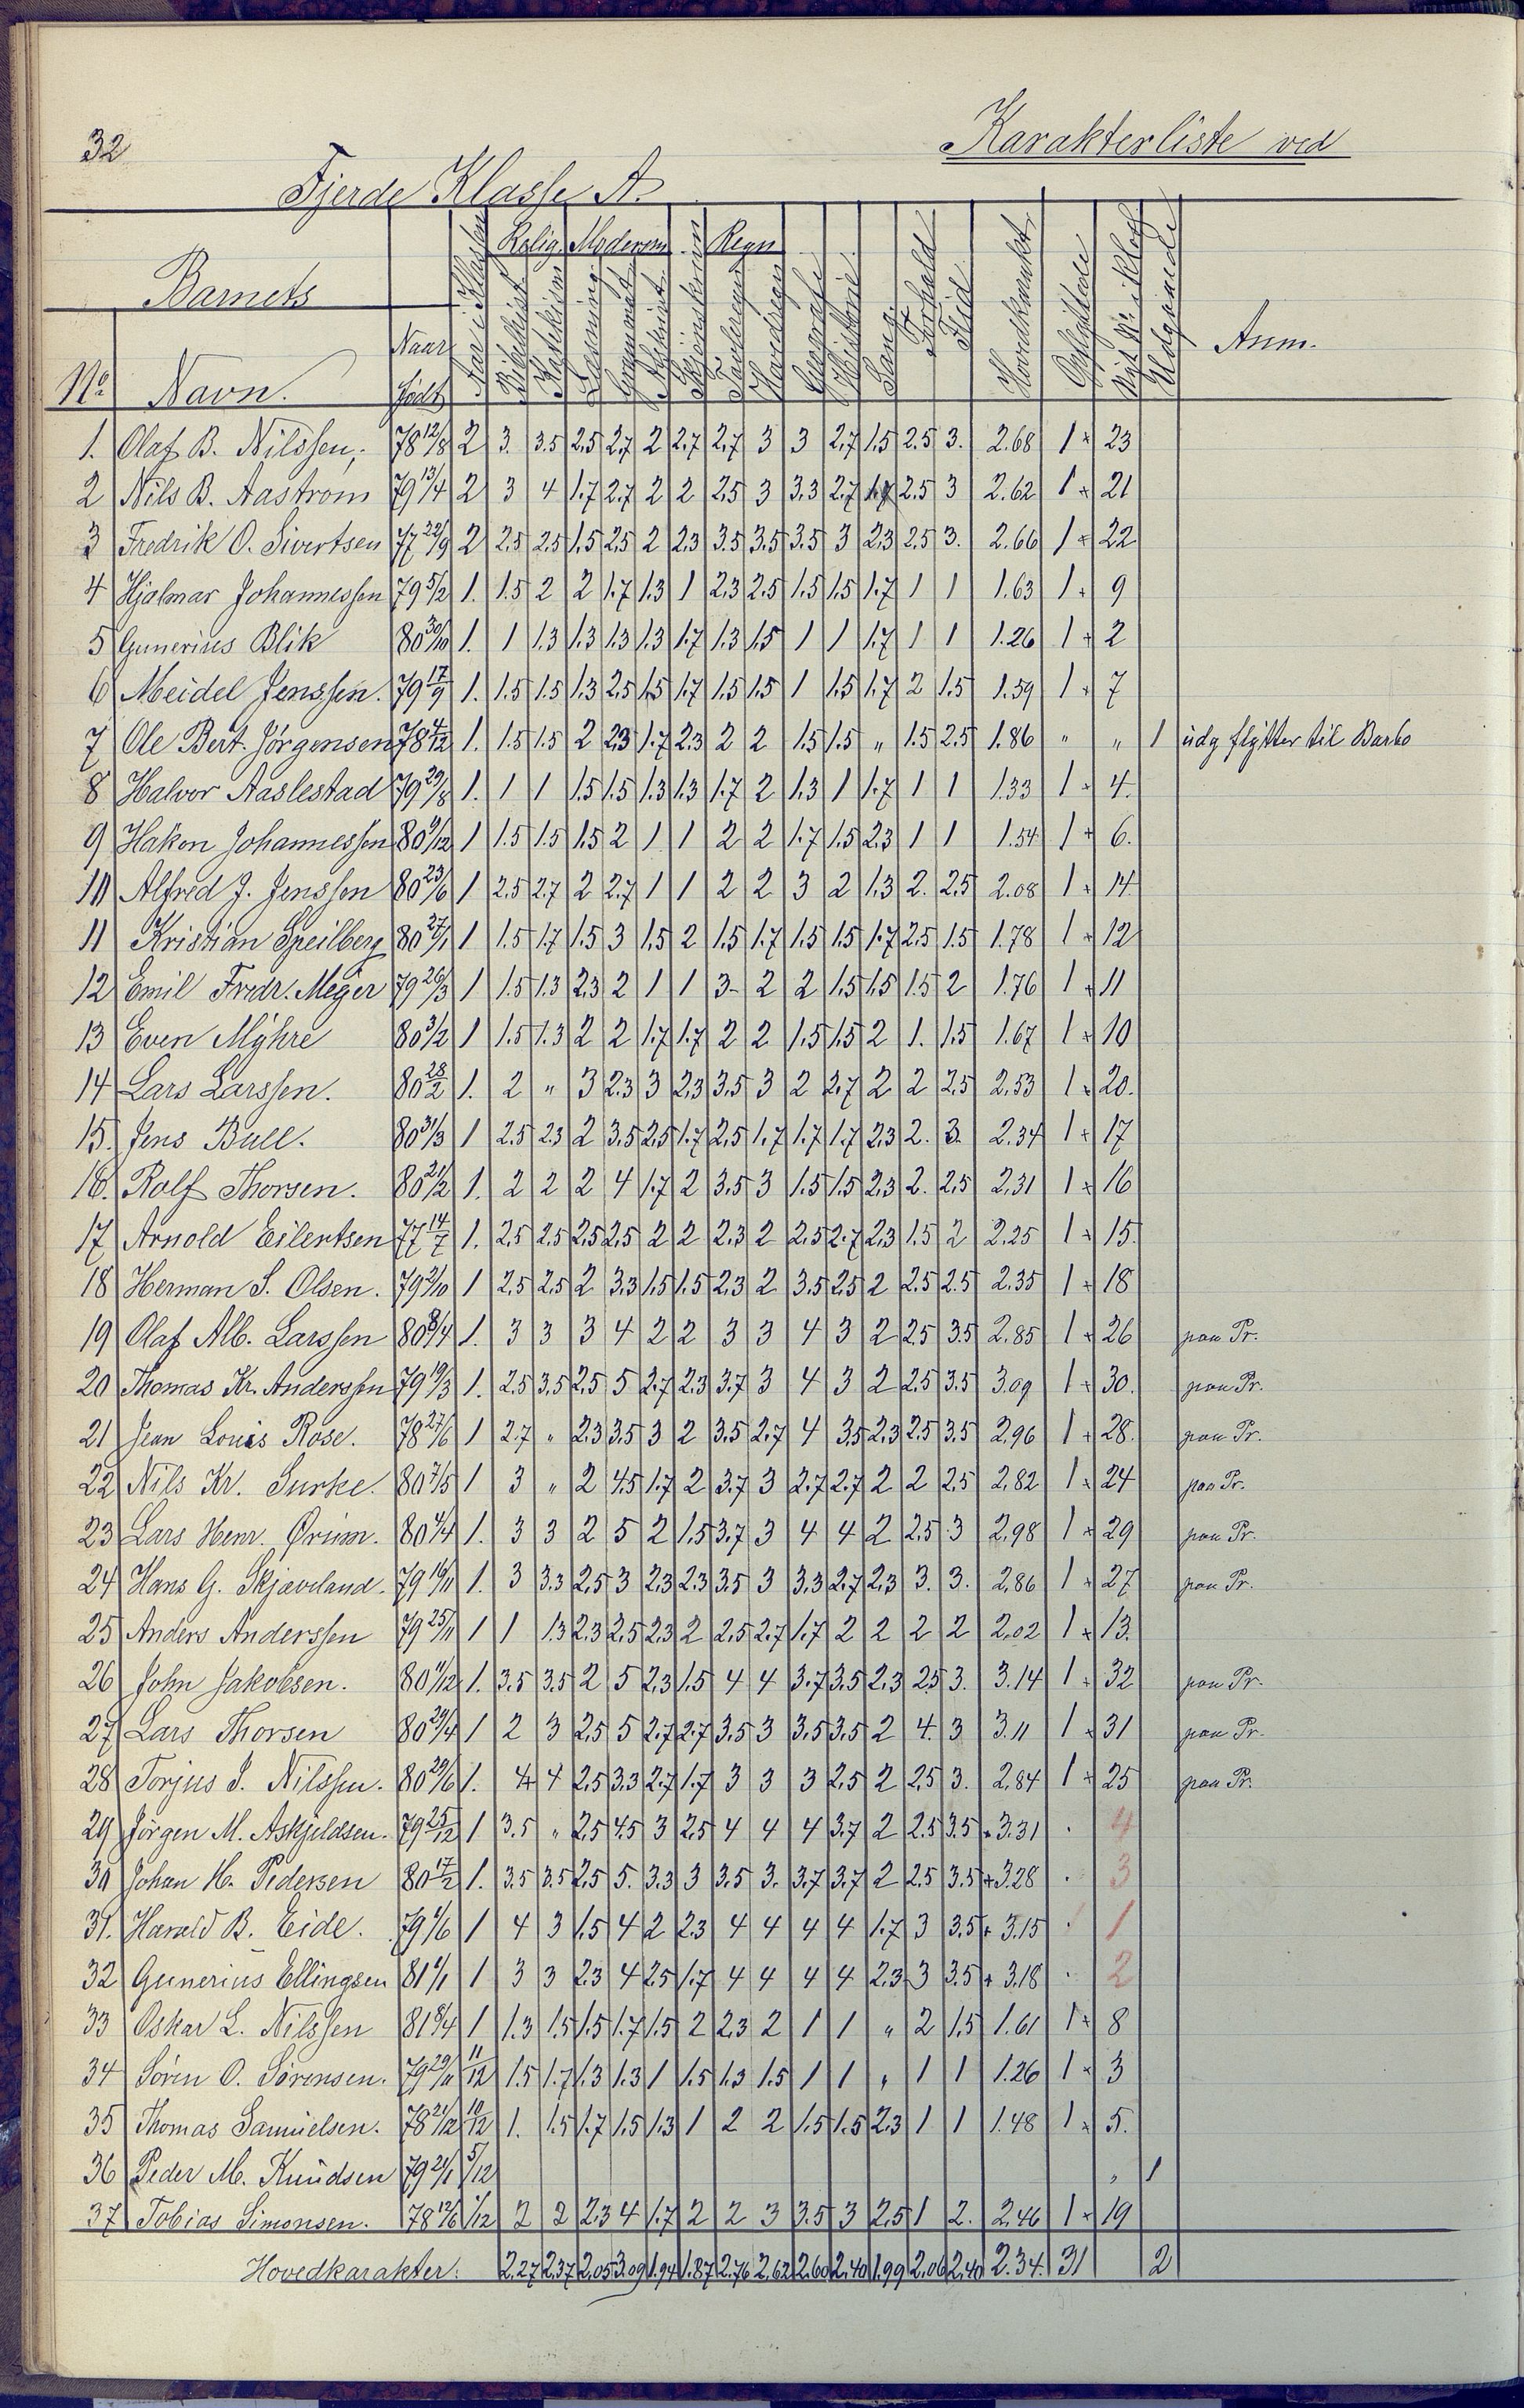 32
Karakterliste ved
Fjerde Klasse A.
Barnets
Relig. Modersm. Regn
No. Navn. Naar født Aar i Klassen Bibelhist. Læsning Skjønskrivn Tavleregn Geografi Historie Sang Forhold Flid Hovedkarakt. Opflyttede Udgaaede Anm.
1. Olaf B. Nilssen, 78 12/8 2 3. 3.5 2.5 2.7 2 2.7 2.7 3 3 2.7 1.5 2.5 3. 2.68 1 + 23
2 Nils B. Aastrom 79 13/4 2 3 4 1.7 2.7 2 2 2.5 3 3.3 2.7 1.7 2.5 3 2.62 1 + 21
3 Fredrik O. Sivertsen 77 22/9 2 2.5 2.5 1.5 2.5 2 2.3 3.5 3.5 3.5 3 2.3 2.5 3. 2.66 1 + 22
4 Hjalmar Johannessen 79 5/2 1. 1.5 2 2 1.7 1.3 1 2.3 2.5 1.5 1.5 1.7 1 1 1.63 1 + 9
5 Gunerius Blik 80 30/10 1. 1 1.3 1.3 1.3 1.3 1.7 1.3 1.5 1 1 1.7 1 1 1.26 1 + 2
6 Meidel Jenssen. 79 17/9 1. 1.5 1.5 1.3 2.5 1.5 1.7 1.5 1.5 1 1.5 1.7 2 1.5 1.59 1 + 7
7 Ole Bert. Jørgensen 78 4/12 1. 1.5 1.5 2 2.3 1.7 2.3 2 2 1.5 1.5 „ 1.5 2.5 1.86 „ „ 1 udg flytter til Barbo
8 Halvor Aaslestad 79 29/8 1. 1 1 1.5 1.5 1.3 1.3 1.7 2 1.3 1 1.7 1 1 1.33 1 + 4.
9 Hakon Johannessen 80 9/12 1 1.5 1.5 1.5 2 1 1 2 2 1.7 1.5 2.3 1 1 1.54 1 + 6.
10 Alfred J. Jenssen 80 23/6 1 2.5 2.7 2 2.7 1 1 2 2 3 2 1.3 2. 2.5 2.08 1 + 14
11 Kristian Speilberg 80 27/1 1 1.5 1.7 1.5 3 1.5 2 1.5 1.7 1.5 1.5 1.7 2.5 1.5 1.78 1 + 12
12 Emil Fredr. Meyer 79 26/3 1 1.5 1.3 2.3 2 1 1 3- 2 2 1.5 1.5 1.5 2 1.76 1 + 11
13 Even Myhre 80 3/2 1 1.5 1.3 2 2 1.7 1.7 2 2 1.5 1.5 2 1. 1.5 1.67 1 + 10
14 Lars Larssen. 80 28/2 1. 2 „ 3 2.3 3 2.3 3.5 3 2 2.7 2 2 2.5 2.53 1 + 20.
15. Jens Bull. 80 31/3 1 2.5 2.3 2 3.5 2.5 1.7 2.5 1.7 1.7 1.7 2.3 2. 3. 2.34 1 + 17
16. Rolf Thorsen. 80 21/2 1. 2 2 2 4 1.7 2 3.5 3 1.5 1.5 2.3 2. 2.5 2.31 1 + 16
17 Arnold Eilertsen 77 14/7 1. 2.5 2.5 2.5 2.5 2 2 2.3 2 2.5 2.7 2.3 1.5 2 2.25 1 + 15.
18 Herman S. Olsen. 79 2/10 1 2.5 2.5 2 3.3 1.5 1.5 2.3 2 3.5 2.5 2 2.5 2.5 2.35 1 + 18
19 Olaf Alb. Larssen 80 8/4 1. 3 3 3 4 2 2 3 3 4 3 2 2.5 3.5 2.85 1 + 26 paa Pr.
20 Thomas Kr. Anderssen 79 19/3 1. 2.5 3.5 2.5 5 2.7 2.3 3.7 3 4 3 2 2.5 3.5 3.09 1 + 30. paa Pr.
21 Jean Louis Rose. 78 27/6 1 2.7 „ 2.3 3.5 3 2 3.5 2.7 4 3.5 2.3 2.5 3.5 2.96 1 + 28. paa Pr.
22 Nils Kr. Surke. 80 7/5 1 3 „ 2 4.5 1.7 2 3.7 3 2.7 2.7 2 2 2.5 2.82 1 + 24 paa Pr.
23 Lars Henr. Ørum. 80 4/4 1. 3 3 2 5 2 1.5 3.7 3 4 4 2 2.5 3 2.98 1 + 29 paa Pr.
24 Hans G. Skjæveland. 79 16/11 1. 3 3.3 2.5 3 2.3 2.3 3.5 3 3.3 2.7 2.3 3. 3. 2.86 1 + 27 paa Pr.
25 Anders Anderssen 79 25/11 1 1 1.3 2.3 2.5 2.3 2 2.5 2.7 1.7 2 2 2 2 2.02 1 + 13.
26 John Jakobsen. 80 11/12 1. 3.5 3.5 2 5 2.3 1.5 4 4 3.7 3.5 2.3 2.5 3. 3.14 1 + 32 paa Pr.
27 Lars Thorsen 80 29/4 1 2 3 2.5 5 2.7 2.7 3.5 3 3.5 3.5 2 4. 3 3.11 1 + 31 paa Pr.
28 Torjus J. Nilssen. 80 20/6 1. 4 4 2.5 3.3 2.7 1.7 3 3 3 2.5 2 2.5 3. 2.84 1 + 25 paa Pr.
29 Jørgen M. Askjeldsen. 79 25/12 1 3.5 „ 2.5 4.5 3 2.5 4 4 4 3.7 2 2.5 3.5 + 3.31 · 4
30 Johan H. Pedersen 80 17/2 1. 3.5 3.5 2.5 5. 3.3 3 3.5 3. 3.7 3.7 2 2.5 3.5 + 3.28 · 3
31. Harald B. Eide. 79 1/6 1 4 3 1.5 4 2 2.3 4 4 4 4 1.7 3 3.5 + 3.15 · 1
32 Gunerius Ellingsen 81 1/1 1 3 3 2.3 4 2.5 1.7 4 4 4 4 2.3 3 3.5 + 3.18 · 2
33 Oskar L. Nilssen 81 8/4 1 1.3 1.5 1.5 1.7 1.5 2 2.3 2 1 1 „ 2 1.5 1.61 1 + 8
34 Søren O. Sørensen. 79 29/11 11/12 1.5 1.7 1.3 1.3 1 1.5 1.3 1.5 1 1 „ 1 1 1.26 1 + 3
35 Thomas Samuelsen. 78 21/12 10/12 1. 1.5 1.7 1.5 1.3 1 2 2 1.5 1.5 2.3 1 1 1.48 1 + 5.
36 Peder M. Knudsen 79 21/1 5/12 „ 1
37 Tobias Simonsen. 78 17/6 1/12 2 2 2.3 4 1.7 2 2 3 3.5 3 2.5 1 2. 2.46 1 + 19
Hovedkarakter: 2.27 2.37 2.05 3.09 1.94 1.87 2.76 2.62 2.60 2.40 1.99 2.06 2.40 2.34. 31 2